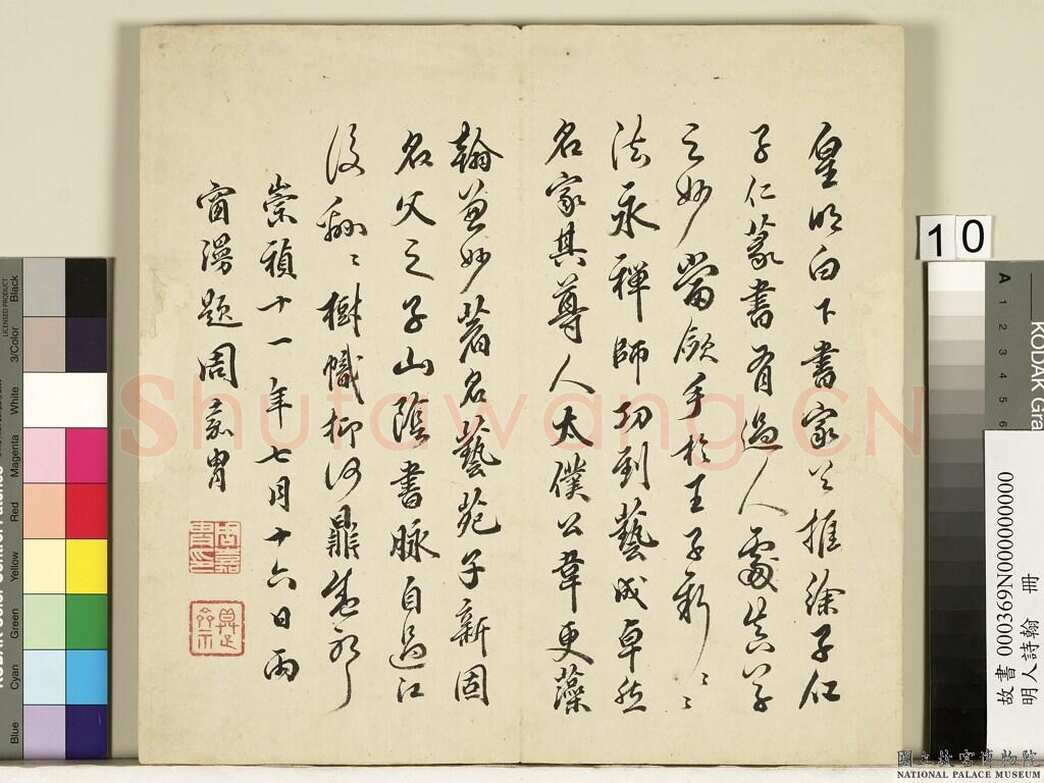 皇明白下書家必推徐子仁
子仁篆書有過人處真草
之妙當歛手於王子新〻〻
法永禪師功到藝成卓然
名家其尊人太僕公韋更藻
翰並妙著名藝苑子新固
名父之子山陰書脉自過江
後翩〻樹幟抑何鼎盛乃爾
崇禎十一年七月十六日雨
窗漫題周嘉胄
Shufawang.CN
10
KODAK Gra
A 1 2 3 4 5 6
故書 000369N000000000
明人詩翰 冊
國立故宮博物院
NATIONAL PALACE MUSEUM
LICENSED PRODUCT
Black
3/Color
White
Magenta
Red
Yellow
Green
Cyan
Blue
周嘉胄印